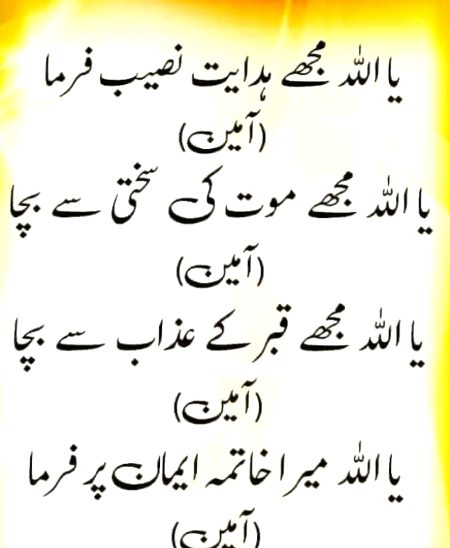 یا اللہ مجھے ہدایت نصیب فرما
(آمین)
یا اللہ مجھے موت کی سختی سے بچا
(آمین)
یا اللہ مجھے قبر کے عذاب سے بچا
(آمین)
یا اللہ میرا خاتمہ ایمان پر فرما
(آمین)